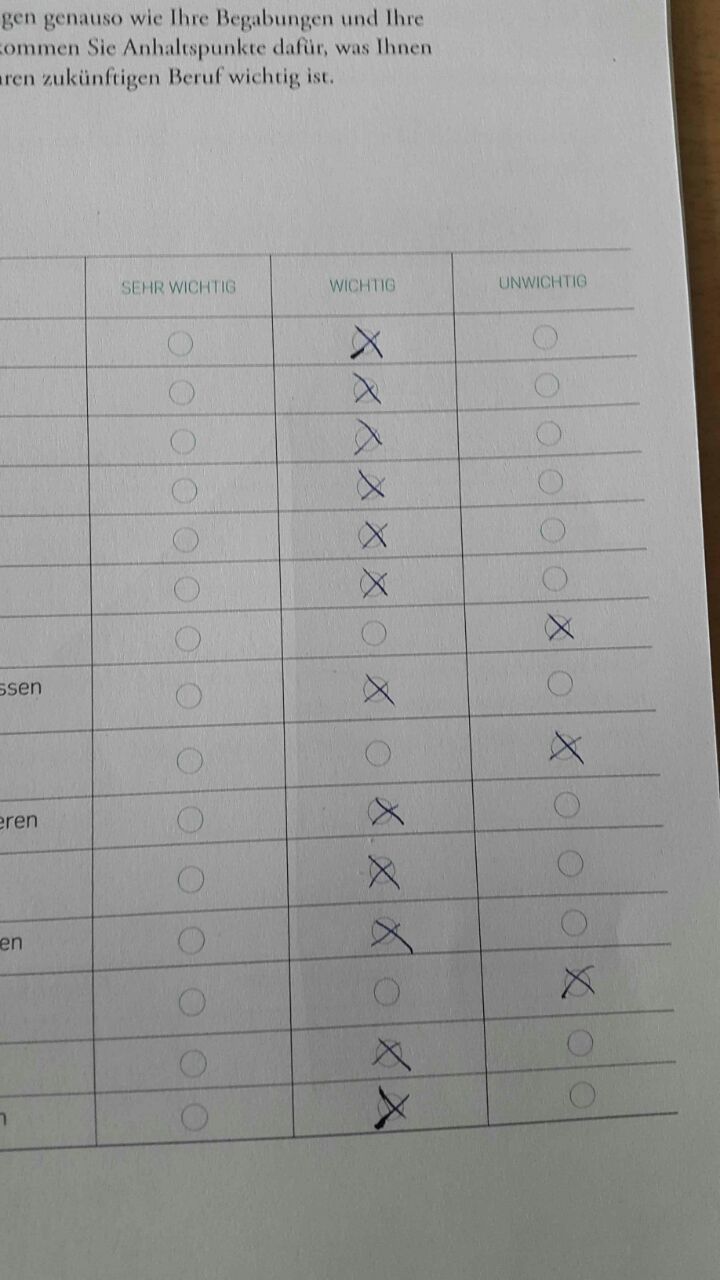 gen genauso wie Ihre Begabungen und Ihre
kommen Sie Anhaltspunkte dafür, was Ihnen
hren zukünftigen Beruf wichtig ist.
SEHR WICHTIG WICHTIG UNWICHTIG
ssen
eren
en
n